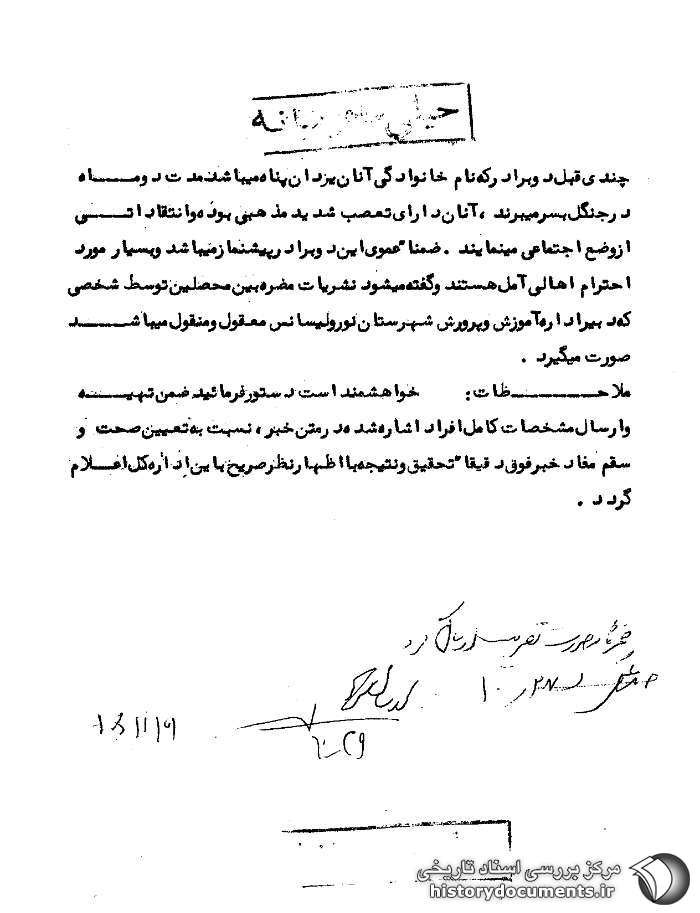 خیلی محرمانه
چندی قبل دو برادر که نام خانوادگی آنان یزدان پناه میباشد مدت دو ماه
در جنگل بسر میبرند ، آنان دارای تعصب شدید مذهبی بوده و انتقاداتی
از وضع اجتماعی مینمایند . ضمنا" عموی این دو برادر پیشنماز میباشد و بسیار مورد
احترام اهالی آمل هستند و گفته میشود نشریات مضره بین محصلین توسط شخصی
که دبیر اداره آموزش و پرورش شهرستان نور و لیسانس معقول و منقول میباشد
صورت میگیرد .
ملاحظات : خواهشمند است دستور فرمائید ضمن تهیه
و ارسال مشخصات کامل افراد اشاره شده در متن خبر ، نسبت به تعیین صحت و
سقم مفاد خبر فوق دقیقا" تحقیق و نتیجه با اظهار نظر صریح باین اداره کل اعلام
گردد .
مرکز بررسی اسناد تاریخی
historydocuments.ir